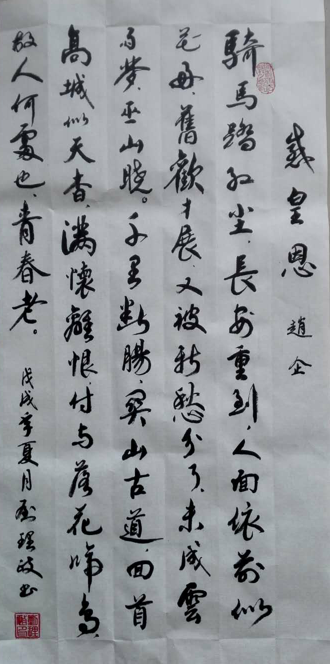 感皇恩 趙企
騎馬踏红尘、長安重到、人面依前似
花好、舊歡才展、又被新愁分了、未成雲
雨夢、巫山曉。千里断腸、関山古道、回首
高城似天杳、滿懷離恨、付与落花啼鳥、
故人何處也、青春老。
戊戌季夏月